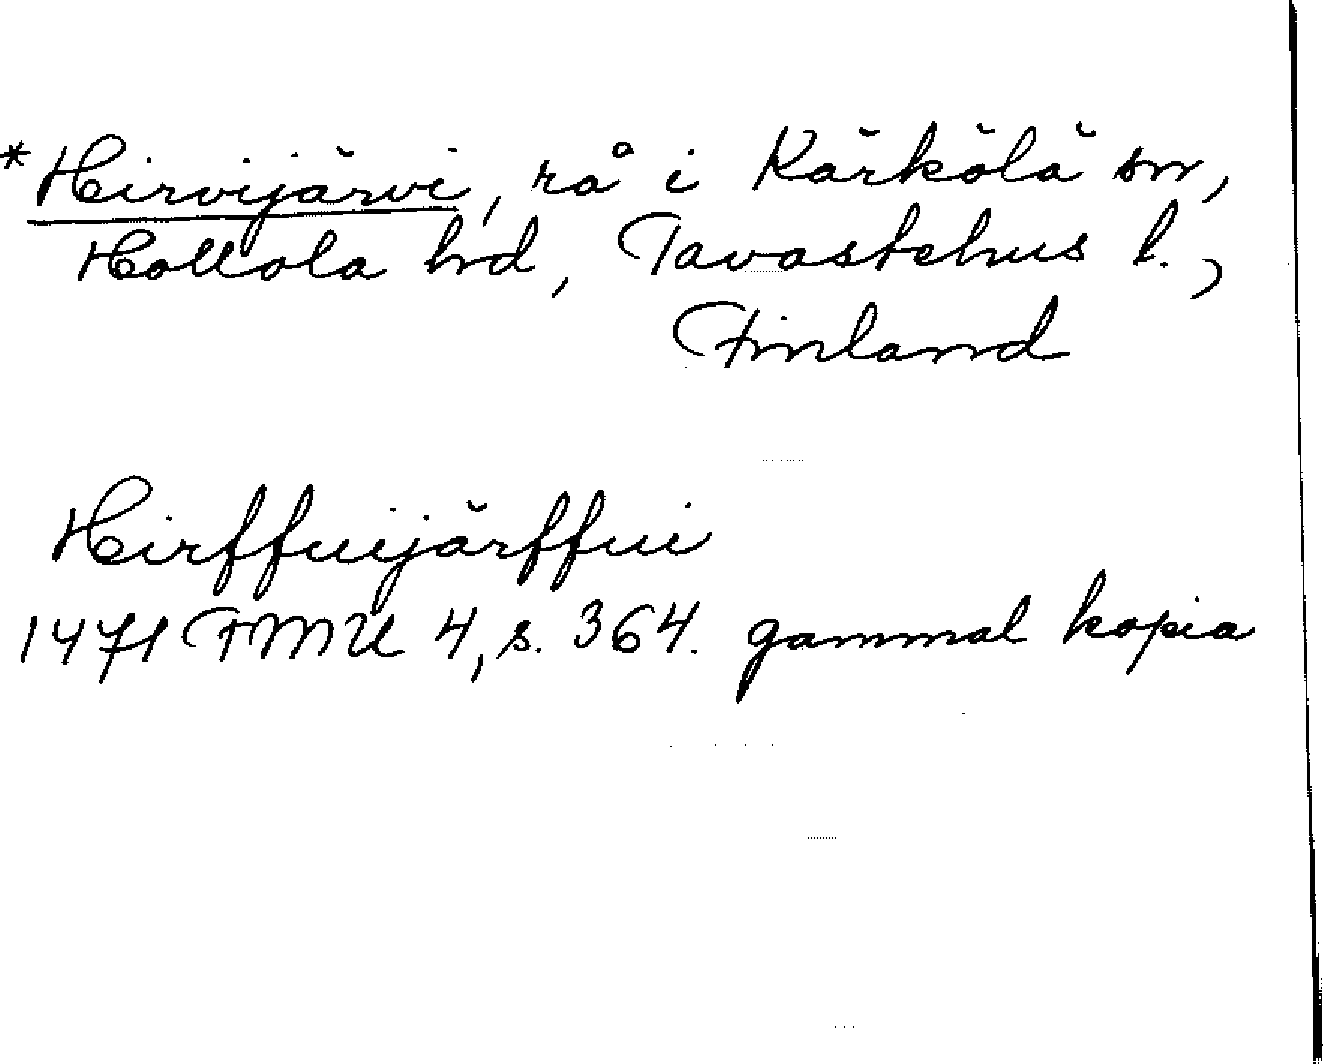 *Hirvijärvi, rå i Kärkölä sn,
Hollola hd, Tavastehus l.,
Finland
Hirffuijärffui
1471 FMU 4, s. 364. gammal kopia